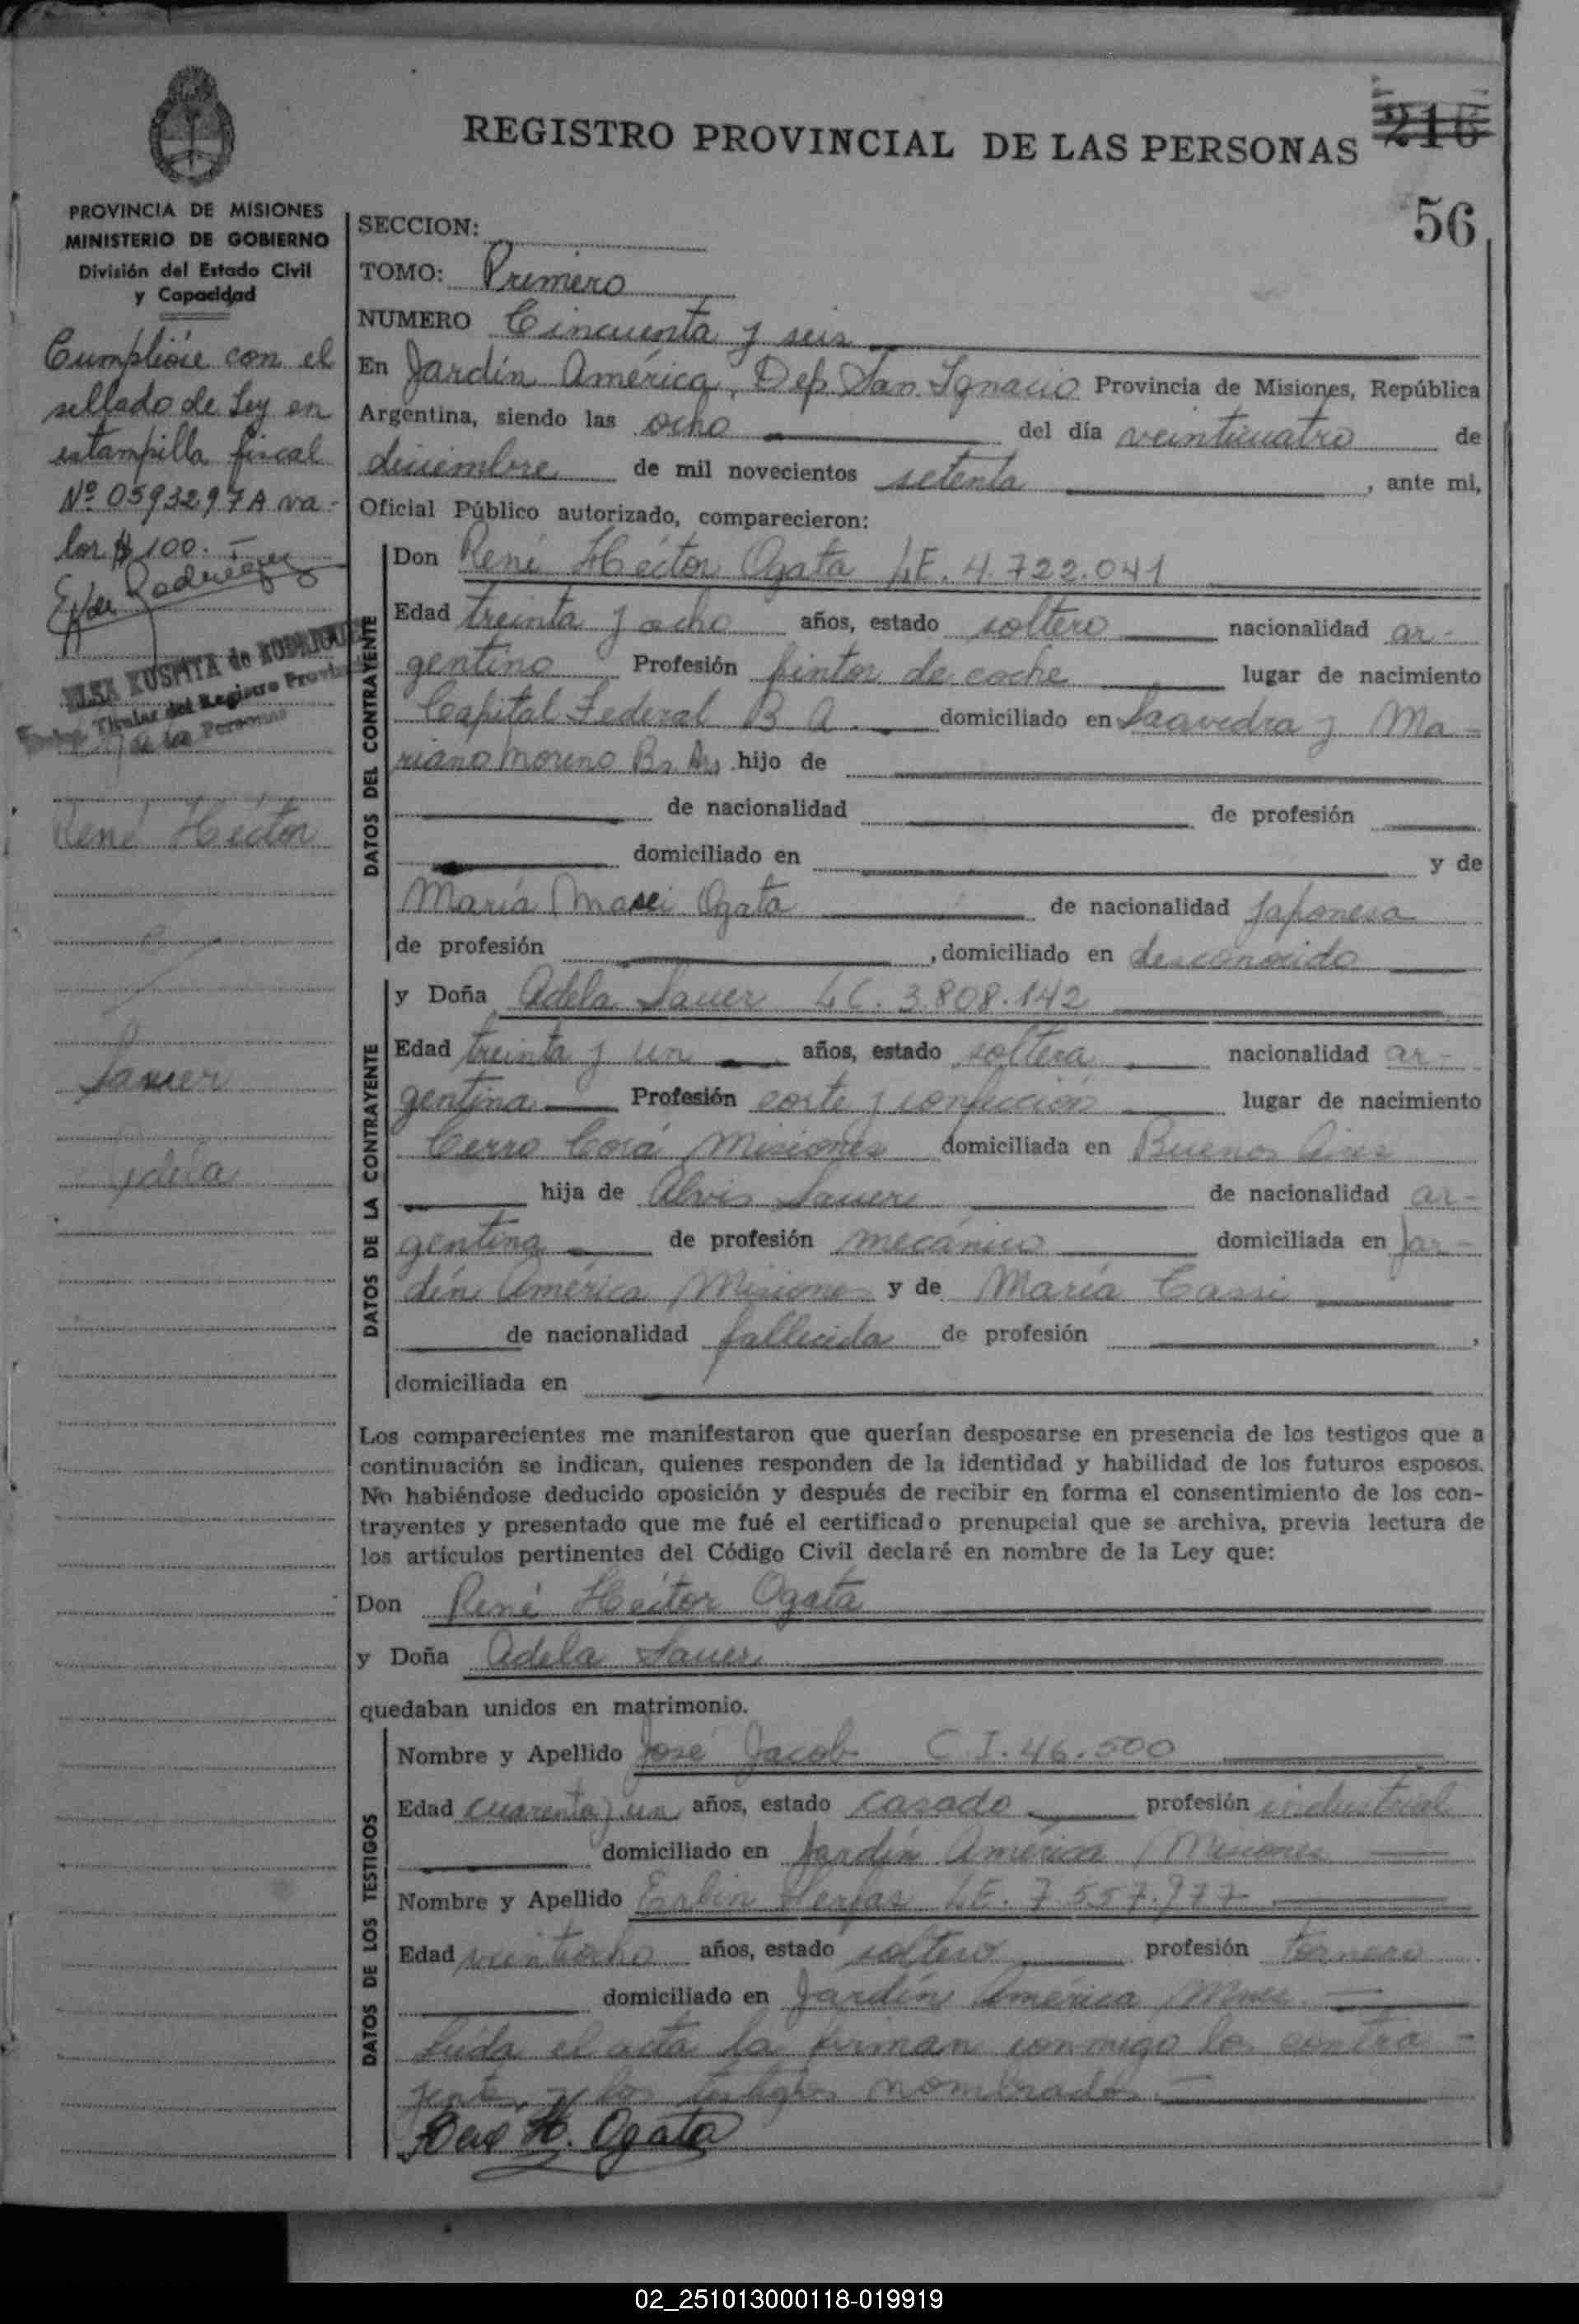 REGISTRO PROVINCIAL DE LAS PERSONAS
216
56
PROVINCIA DE MISIONES
MINISTERIO DE GOBIERNO
División del Estado Civil
y Capacidad
Cumplióse con el
sellado de Ley en
estampilla fiscal
Nº 0593297A va-
lor $ 100.-
ELSA KUSPITA de RODRIGUEZ
Titular del Registro Provincial
de las Personas
René Héctor
Sauer
SECCION:
TOMO: Primero
NUMERO Cincuenta y seis
En Jardín América, Dep. San Ignacio Provincia de Misiones, República
Argentina, siendo las ocho del día veinticuatro de
diciembre de mil novecientos setenta, ante mi,
Oficial Público autorizado, comparecieron:
DATOS DEL CONTRAYENTE
Don René Héctor Ogata LE. 4.722.041
Edad treinta y ocho años, estado soltero nacionalidad ar-
gentino Profesión pintor de coche lugar de nacimiento
Capital Federal B A. domiciliado en Saavedra y Ma-
riano Moreno Bs As hijo de
de nacionalidad de profesión
domiciliado en y de
María Masei Ogata de nacionalidad japonesa
de profesión , domiciliado en desconocido
DATOS DE LA CONTRAYENTE
y Doña Adela Sauer LC. 3.808.142
Edad treinta y un años, estado soltera nacionalidad ar-
gentina Profesión corte y confección lugar de nacimiento
Cerro Corá Misiones domiciliada en Buenos Aires
hija de Alvis Sauer de nacionalidad ar-
gentina de profesión mecánico domiciliada en Jar-
dín América Misiones y de María Cassi
de nacionalidad fallecida de profesión ,
domiciliada en
Los comparecientes me manifestaron que querían desposarse en presencia de los testigos que a
continuación se indican, quienes responden de la identidad y habilidad de los futuros esposos.
No habiéndose deducido oposición y después de recibir en forma el consentimiento de los con-
trayentes y presentado que me fué el certificado prenupcial que se archiva, previa lectura de
los artículos pertinentes del Código Civil declaré en nombre de la Ley que:
Don René Héctor Ogata
y Doña Adela Sauer
quedaban unidos en matrimonio.
DATOS DE LOS TESTIGOS
Nombre y Apellido José Jacob C I. 46.500
Edad cuarenta y un años, estado casado profesión industrial
domiciliado en Jardín América Misiones
Nombre y Apellido Erbin LE. 7.557.977
Edad veintiocho años, estado soltero profesión tornero
domiciliado en Jardín América Mnes
Leída el acta la firman conmigo los contra-
yentes y los testigos nombrados.-
René H. Ogata
02_251013000118-019919